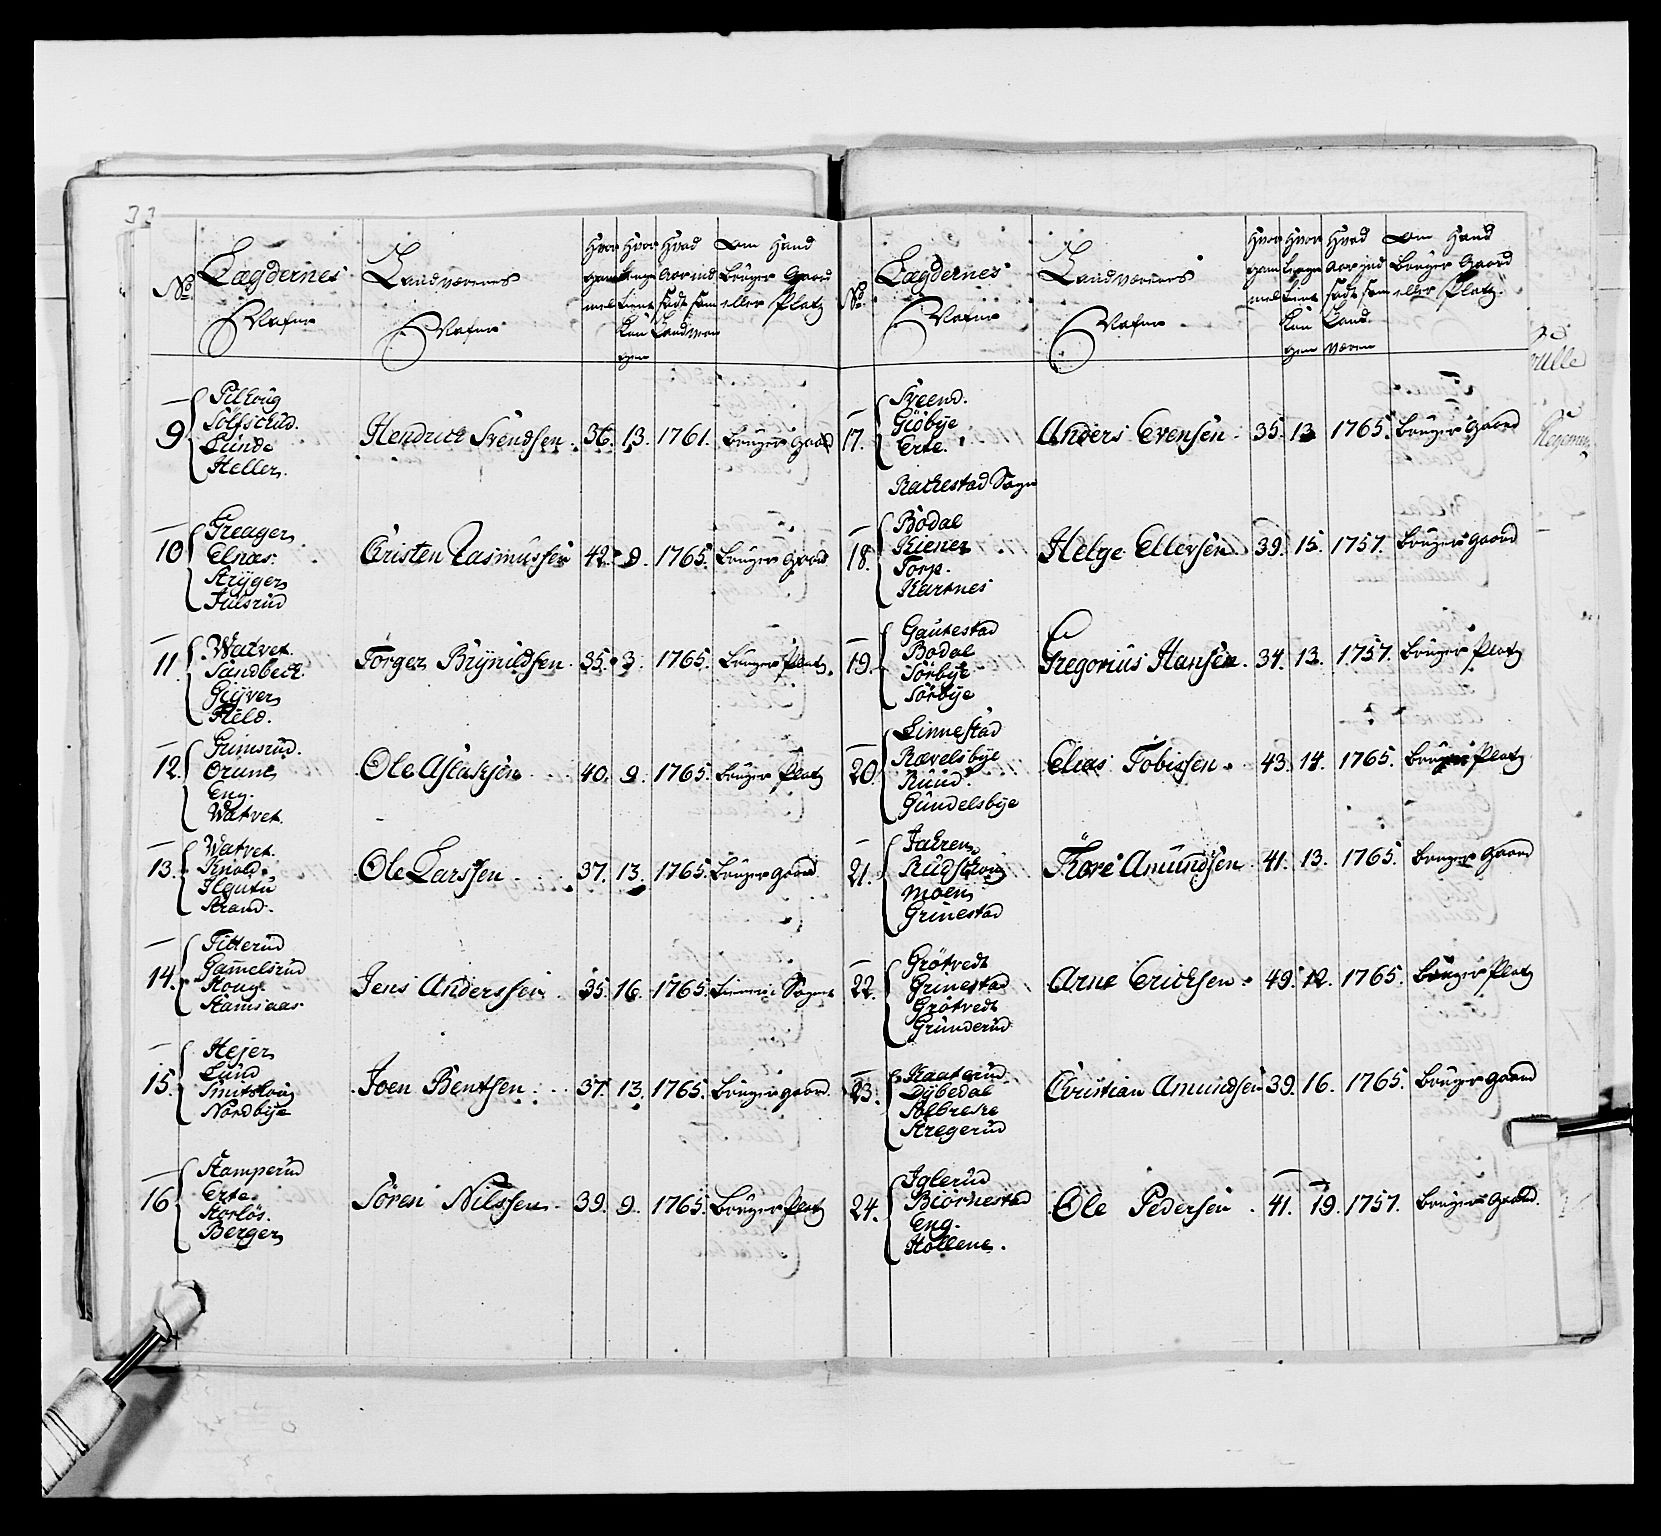 33
No.
Lægdernes
Nafne
Landværnes
Nafne
Hvor gammel
Hvor længe tient Kongen
Hvad Aar indsadt som Landværn
Om Hand
bruger Gaard
eller Platz
9
Pilhoug
Solfschud.
Lunde
Heller.
Hendrich Svendsen. 36. 13. 1761. bruger gaard
10
Greager
Elnæs.
Stryger
Julsrud
Cristen Rasmussen 42. 9. 1765. bruger gaard.
11.
Watvet.
Sandbeck.
Gyver
Kield.
Torger Brynildsen. 35. 3. 1765. bruger Platz.
12.
Grimsrud.
Eng.
Watvet.
Ole Aslaksen 40. 9. 1765. bruger Platz
13.
Watvet.
Knold.
Strand.
Ole Larssen 37. 13. 1765. bruger gaard
14.
Titterud
Gamelsrud
Houg.
Hamsaas
Jens Anderssen 35. 16. 1765.
15.
Hejer
Lund
Smitshoug
Nordbye
Joen Bentsen. 37. 13. 1765. bruger gaard.
16
Stamperud
Erte.
Storløs.
Berger
Sören Nilssen. 39. 9. 1765. bruger Platz
No.
Lægdernes
Nafne
Landværnes
Nafne
Hvor gammel
Hvor længe tient Kongen
Hvad Aar indsadt som Landværn
Om Hand
bruger Gaard
eller Platz.
17.
Sveend.
Giöbye
Erte.
Anders Evensen. 35. 13 1765. bruger gaard
Rachestad Sogn
18.
Bodal
Kiener
Torp.
Kartnes
Helge Ellevsen 39. 15. 1757. bruger gaard
19.
Gautestad
Bodal
Sörbye
Sörbye
Gregorius Hansen. 34. 13. 1757. bruger Platz
20
Linnestad
Rævelsbye
Ruud.
Gundelsbye
Elias Tobissen. 43. 14. 1765. bruger Platz
21.
Jahren
Rudshoug
Moen
Grinestad
Tore Amundsen 41. 13. 1765. bruger gaard
22.
Grötvedt
Grinestad
Grötvedt
Grunderud
Arne Erichsen. 49. 12. 1765. bruger Platz
23.
Kaaterud
Dybedal
Solbreke
Stregerud
Christian Amundsen 39. 16. 1765. bruger gaard
24.
Iglerud
Biörnestad
Eng.
Kollene.
Ole Pedersen. 41. 19. 1757. bruger gaard.